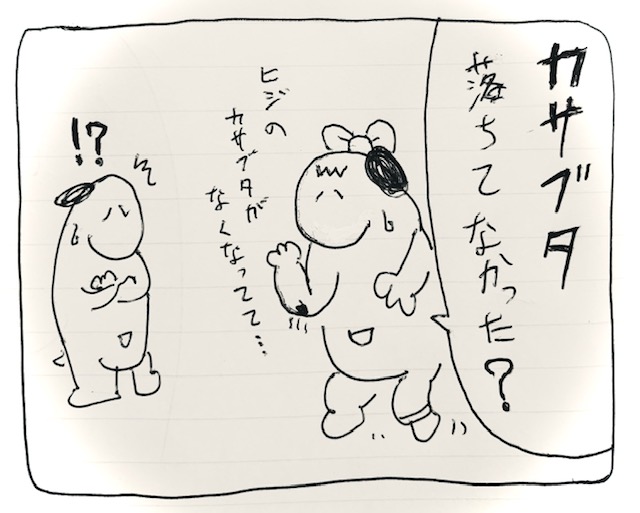 カサブタ
落ちてなかった？
ヒジの
カサブタが
なくなってて…
!?